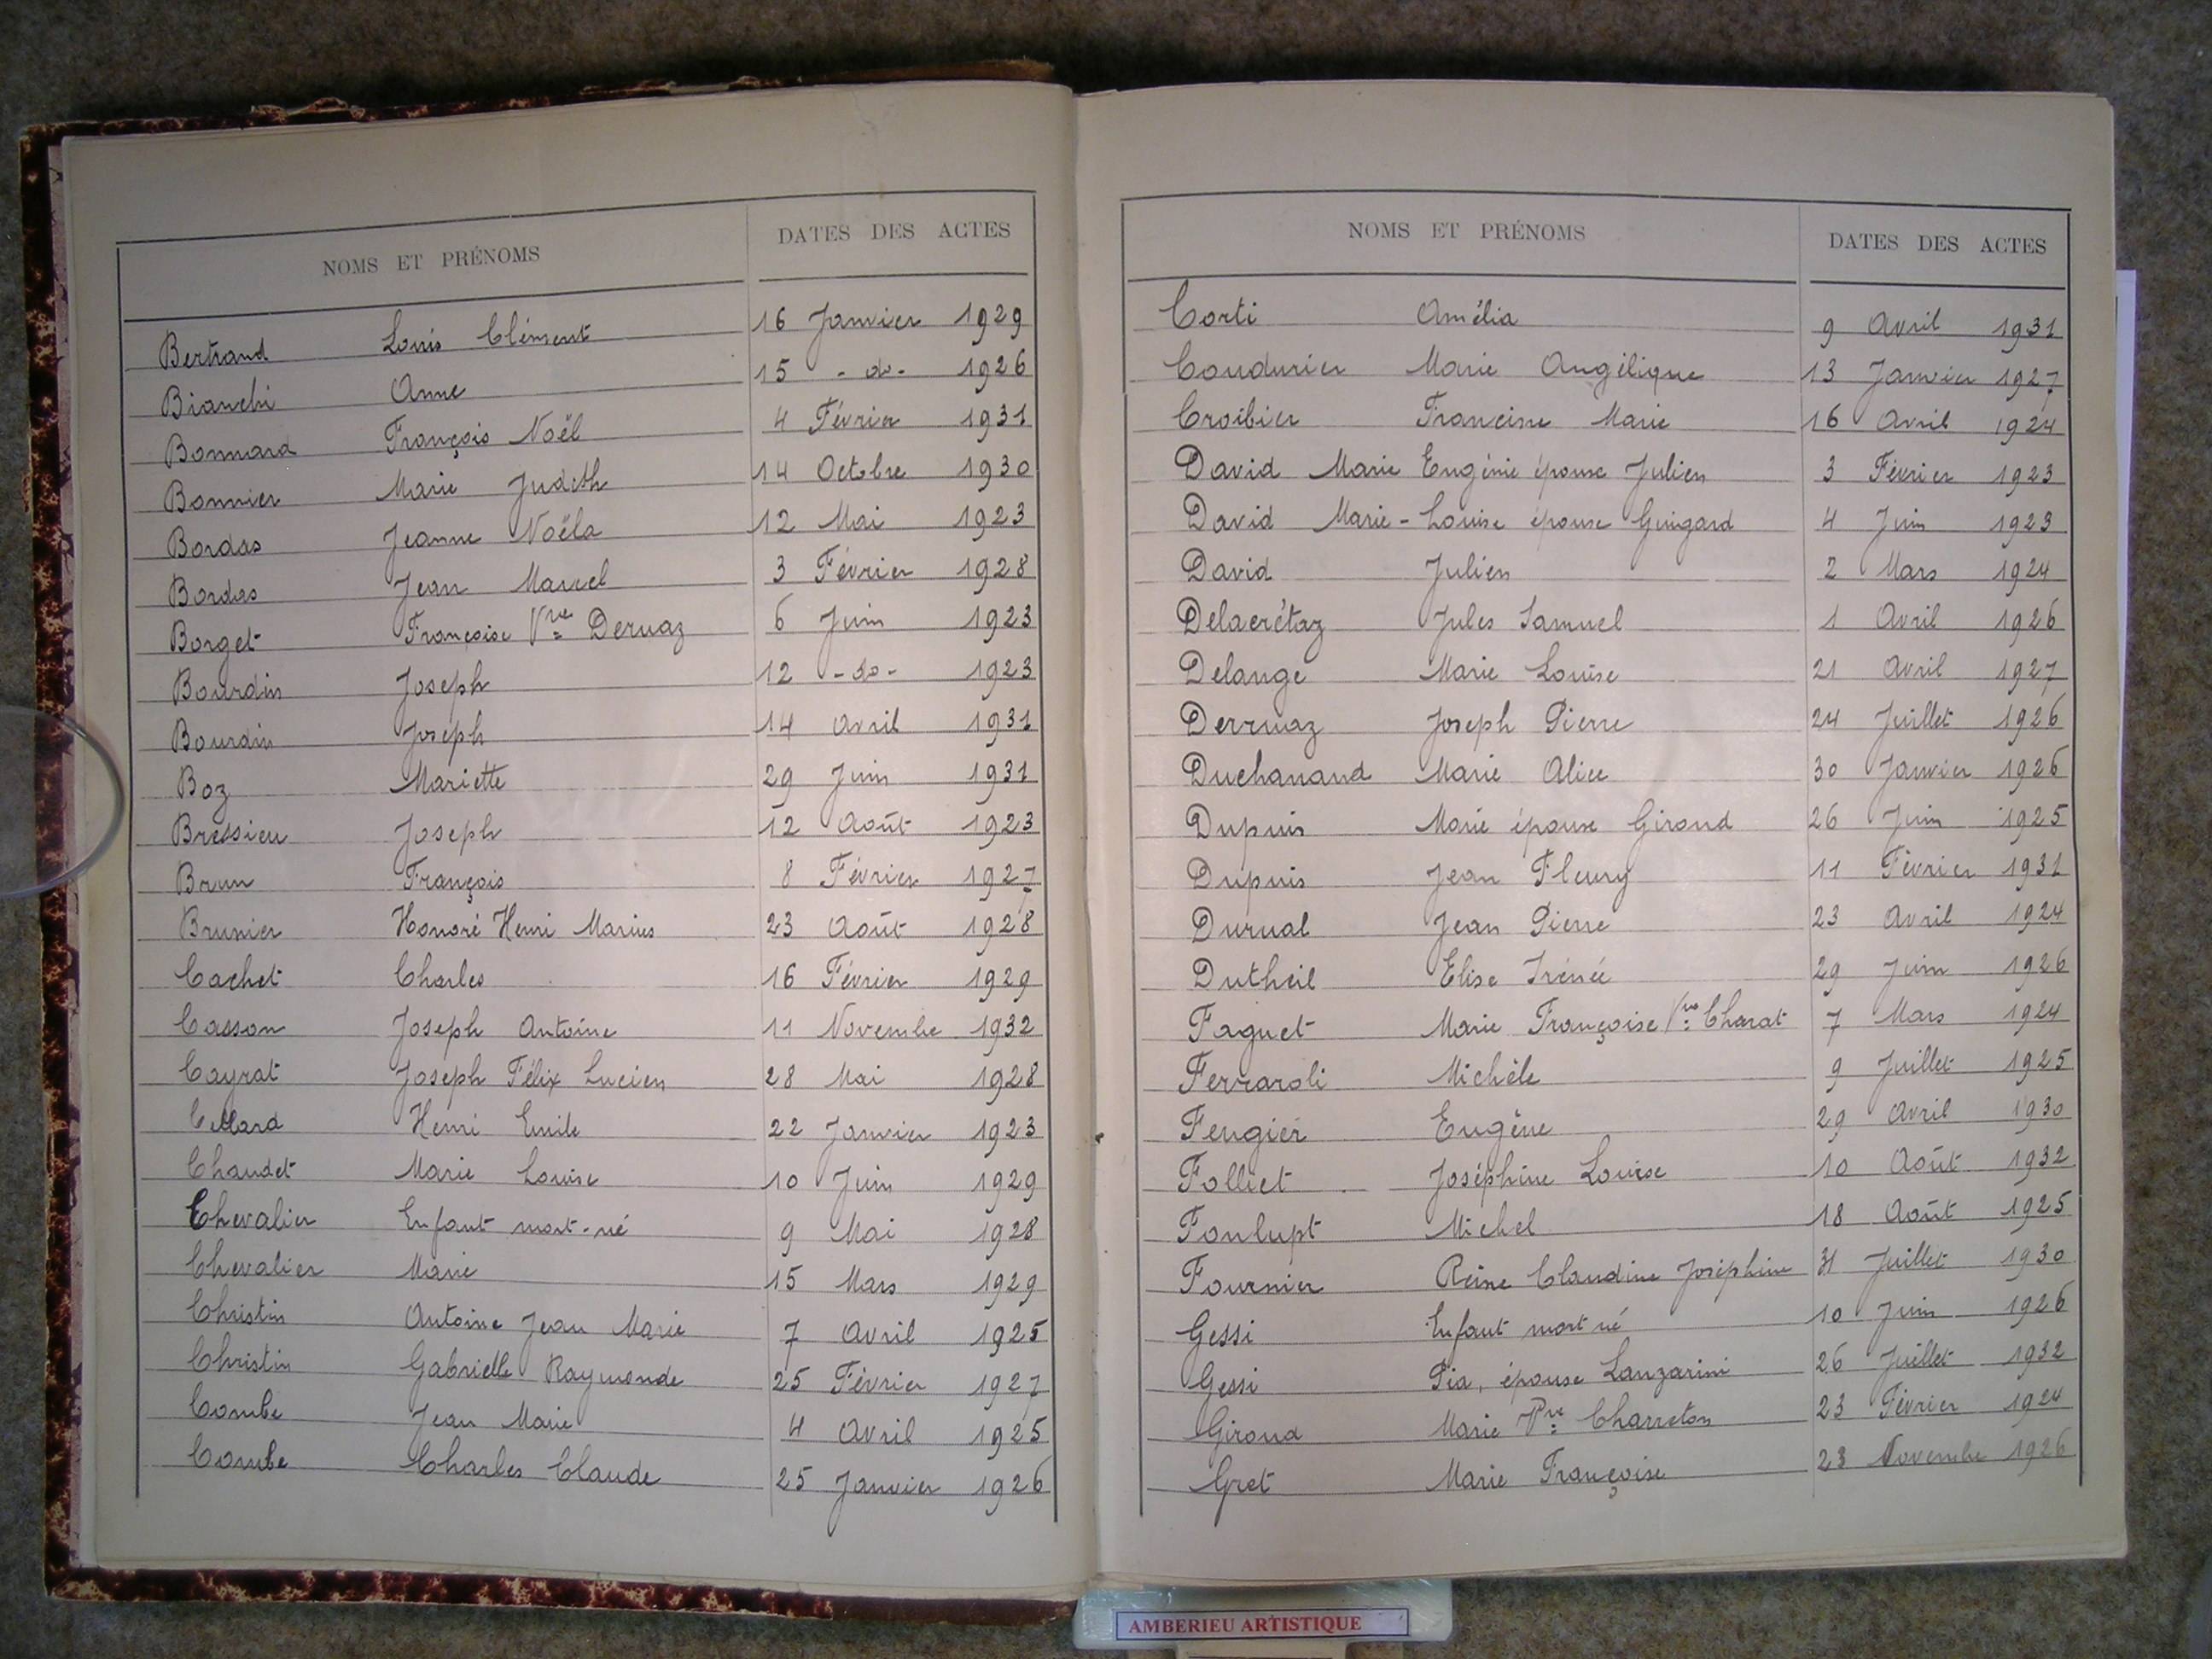 NOMS ET PRÉNOMS DATES DES ACTES
Bertrand Louis Clément 16 Janvier 1929
Bianchi Anne 15 -do- 1926
Bonnard François Noël 4 Février 1931
Bonnier Marie Judith 14 Octobre 1930
Bordas Jeanne Noëla 12 Mai 1923
Bordas Jean Marcel 3 Février 1928
Borget Françoise Vve Dervaz 6 Juin 1923
Bourdin Joseph 12 -do- 1923
Bourdin Joseph 14 Avril 1931
Boz Mariette 29 Juin 1931
Bressieu Joseph 12 Août 1923
Brun François 8 Février 1927
Brunier Honoré Henri Marius 23 Août 1928
Cachet Charles 16 Février 1929
Casson Joseph Antoine 11 Novembre 1932
Cayrat Joseph Félix Lucien 28 Mai 1928
Henri Emile 22 Janvier 1923
Chaudet Marie Louise 10 Juin 1929
Chevalier Enfant mort-né 9 Mai 1928
Chevalier Marie 15 Mars 1929
Christin Antoine Jean Marie 7 Avril 1925
Christin Gabrielle Raymonde 25 Février 1927
Combe Jean Marie 4 Avril 1925
Combe Charles Claude 25 Janvier 1926
NOMS ET PRÉNOMS DATES DES ACTES
Corti Amélia 9 Avril 1931
Coudurier Marie Angélique 13 Janvier 1927
Croibier Francine Marie 16 Avril 1924
David Marie Eugénie épouse Julien 3 Février 1923
David Marie-Louise épouse Guigard 4 Juin 1923
David Julien 2 Mars 1924
Delacrétaz Jules Samuel 1 Avril 1926
Delange Marie Louise 21 Avril 1927
Derruaz Joseph Pierre 24 Juillet 1926
Duchanand Marie Alice 30 Janvier 1926
Dupuis Marie épouse Giroud 26 Juin 1925
Dupuis Jean Fleury 11 Février 1931
Durual Jean Pierre 23 Avril 1924
Dutheil Elise Irénée 29 Juin 1926
Faguet Marie Françoise Vve Charat 7 Mars 1924
Ferraroli Michèle 9 Juillet 1925
Feugier Eugène 29 Avril 1930
Folliet Joséphine Louise 10 Août 1932
Foulupt Michel 18 Août 1925
Fournier Reine Claudine Joséphine 31 Juillet 1930
Gessi Enfant mort né 10 Juin 1926
Gessi Pia, épouse Lanzarini 26 Juillet 1932
Giroud Marie Vve Charreton 23 Février 1924
Gret Marie Françoise 23 Novembre 1926
AMBERIEU ARTISTIQUE